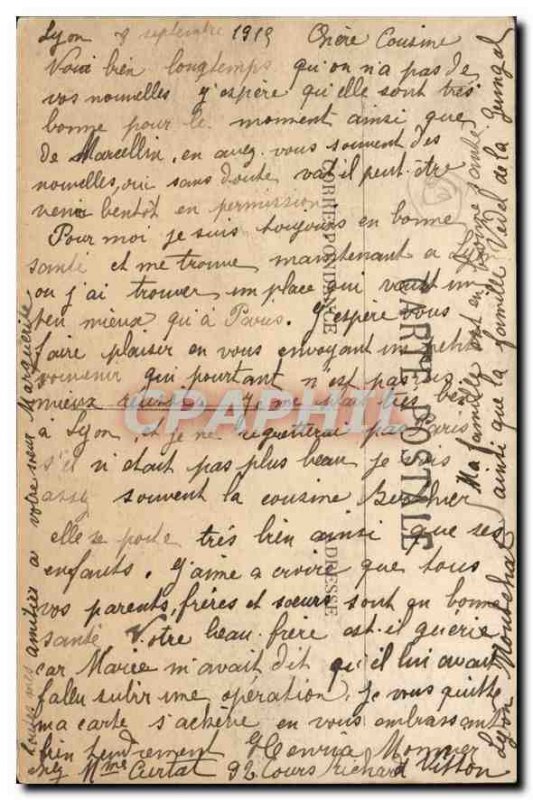 Lyon 8 septembre 1919 Chère Cousine
Voici bien longtemps qu'on n'a pas de
vos nouvelles j'espère qu'elle sont très
bonne pour le moment ainsi que
de Marcellin, en avez vous souvent des
nouvelles, oui sans doute, va t'il peut être
venir bentôt en permission
Pour moi je suis toujours en bonne
santé et me trouve maintenant a Lyon
ou j'ai trouver un place qui vaut un
peu mieux qu'à Paris. J'espère vous
faire plaisir en vous envoyant un petit
souvenir qui pourtant n'est pas
mieux je me plait très bien
a Lyon, et je ne regretterai pas Paris
s'il n'etait pas plus beau je vois
assez souvent la cousine Berthier
elle se porte très bien ainsi que ses
enfants. J'aime a croire que tous
vos parents, frères et sœurs sont en bonne
santé Votre beau-frère est-il guérie
car Marie m'avait dit qu'il lui avait
fallu subir une opération. Je vous quitte
ma carte s'achève en vous embrassant
bien tendrement Henria Monnier
chez Mme Curtat 92 Cours Richard Vitton
Lyon Montchat
Ma famille est en bonne santé
ainsi que la famille Vedel de la Guingal
Toutes mes amitiés a votre sœur Marguerite
CARTE POSTALE
CORRESPONDANCE
ADRESSE
CPAPHIL